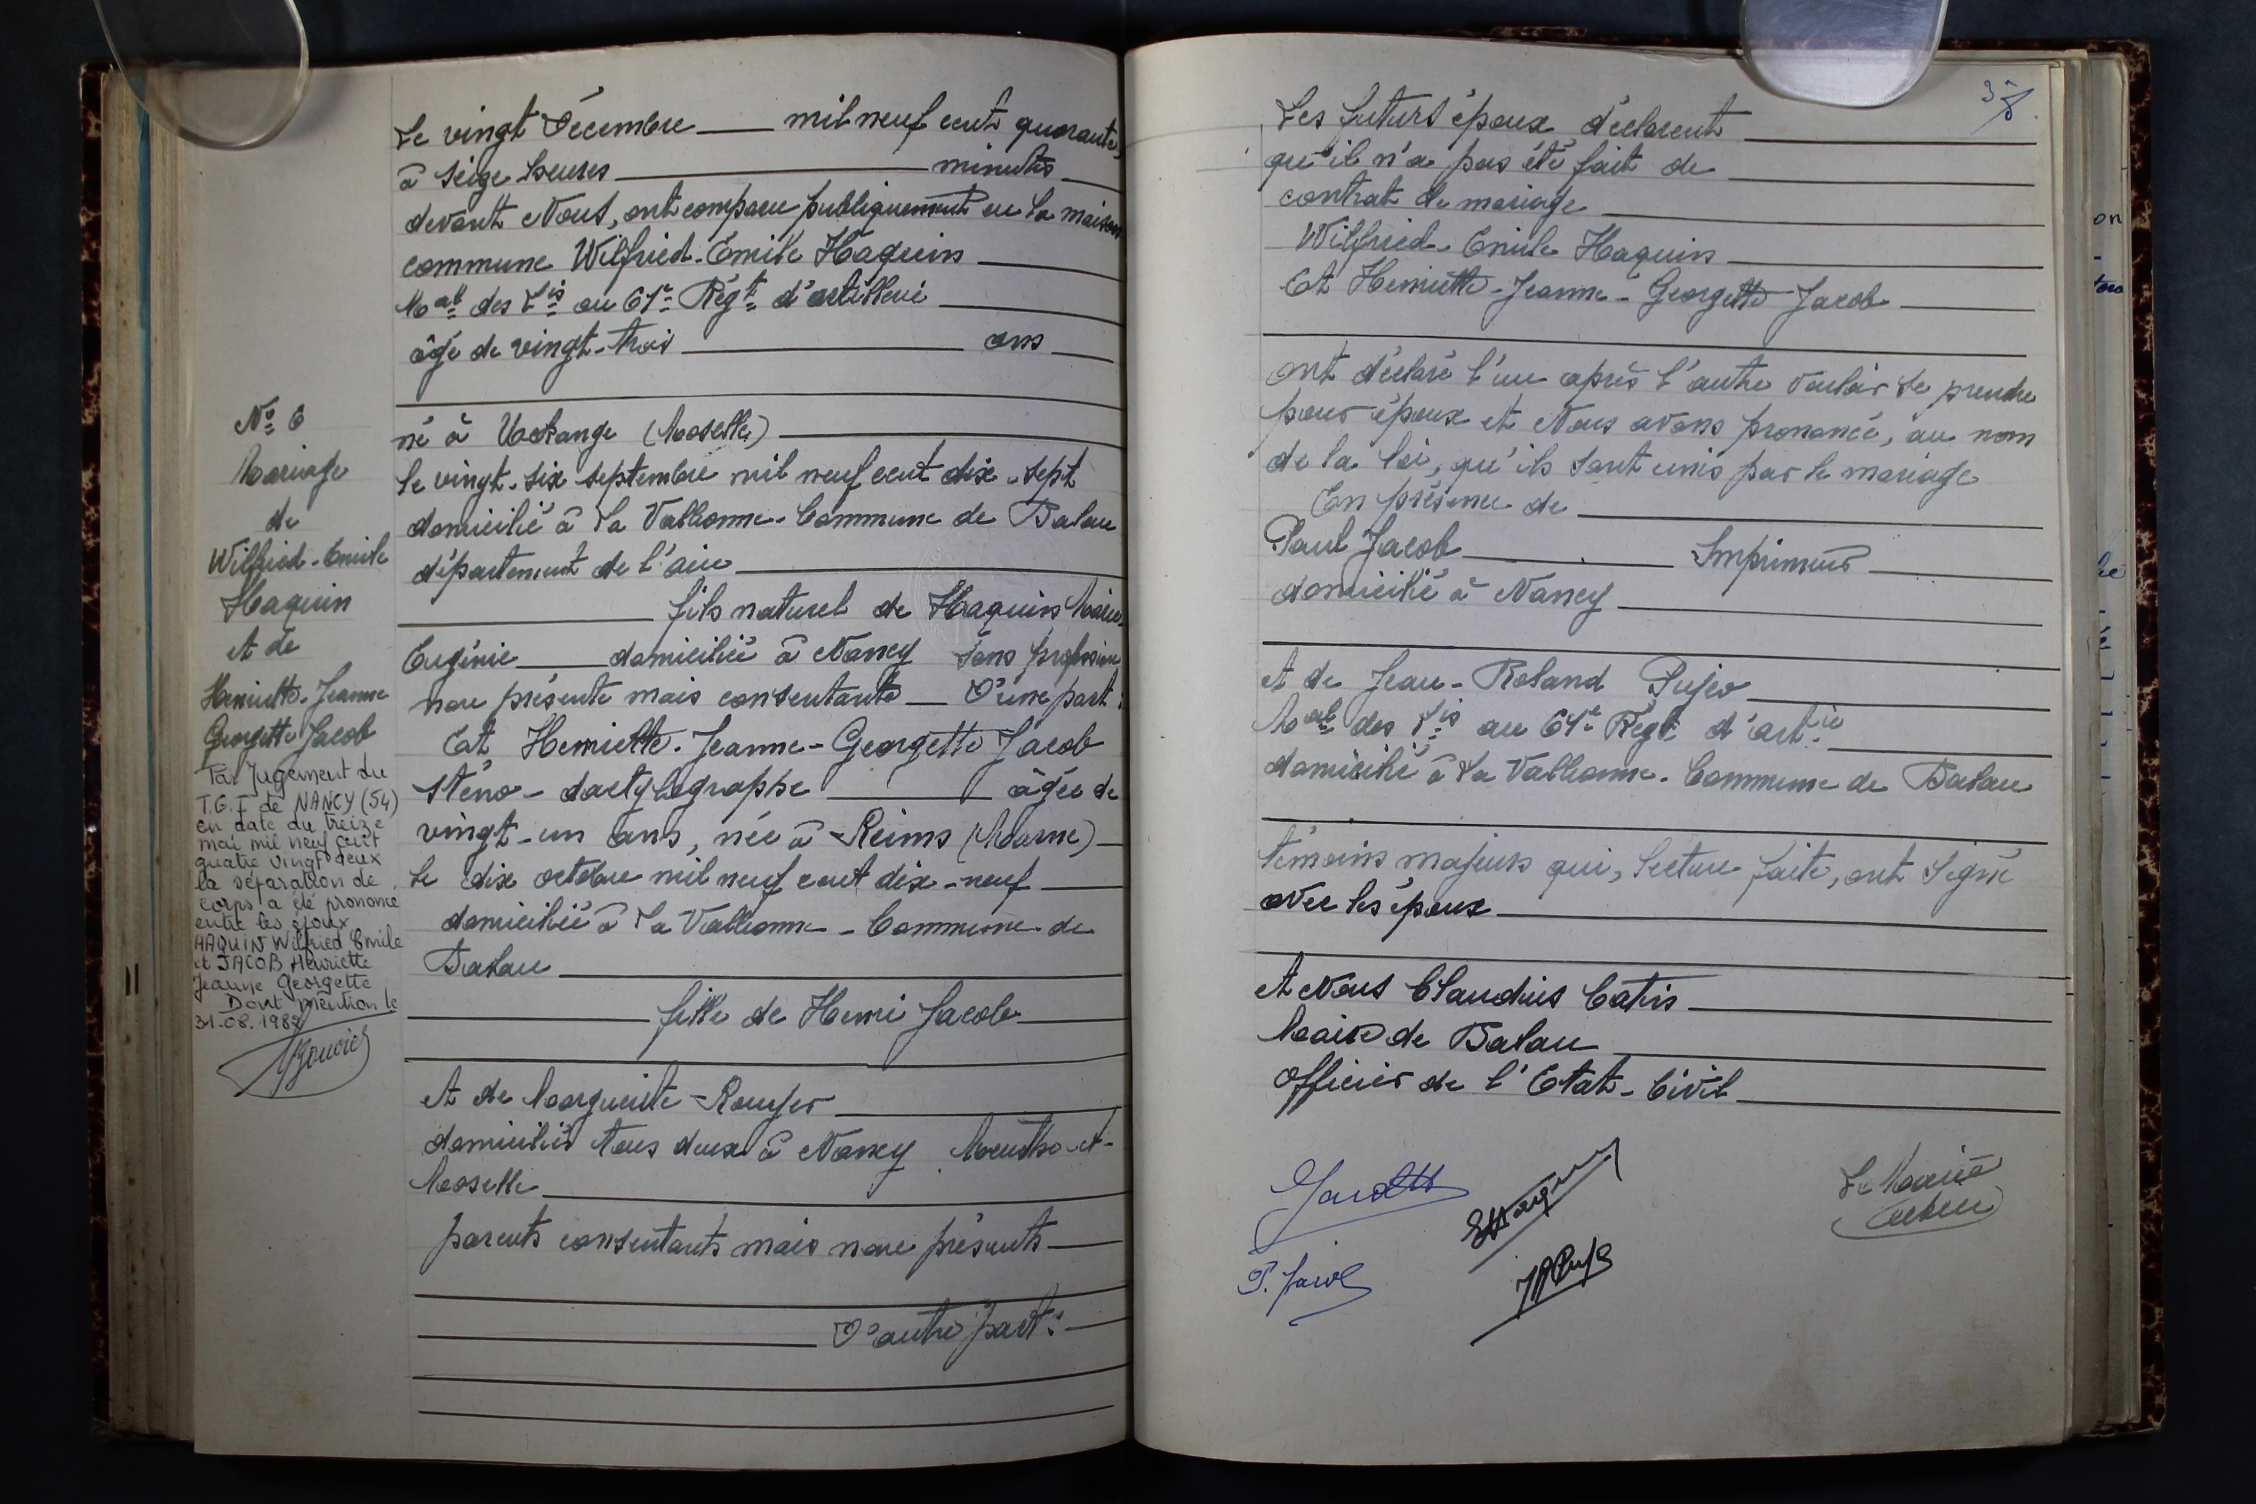 Nº 6
Mariage
de
Wilfried-Emile
Haquin
et de
Henriette-Jeanne
Georgette Jacob
Par Jugement du
T.G.I de NANCY (54)
en date du treize
mai mil neuf cent
quatre vingt deux
la séparation de
corps a été prononcé
entre les époux
HAQUIN Wilfried Emile
et JACOB Henriette
Jeanne Georgette
Dont mention le
31.08.1982
Le vingt Décembre mil neuf cent quarante,
à seize heures minutes
devant Nous, ont comparu publiquement en la maison
commune Wilfried-Emile Haquin
Mal des Lis au 61e Régt d'artillerie
âgé de vingt-trois ans
né à Uckange (Moselle)
le vingt-six septembre mil neuf cent dix-sept
domicilié à La Valbonne-Commune de Balan
département de l'ain
fils naturel de Haquin Marie
Eugénie domiciliée à Nancy sans profession
non présente mais consentante D'une part :
Et Henriette-Jeanne-Georgette Jacob
sténo-dactylographe âgée de
vingt-un ans, née à Reims (Marne)
le dix octobre mil neuf cent dix-neuf
domiciliée à La Valbonne-Commune de
Balan
fille de Henri Jacob
et de Marguerite
domiciliés tous deux à Nancy Meurthe-et-
Moselle
parents consentants mais non présents
D'autre part :
Les futurs époux déclarent
qu'il n'a pas été fait de
contrat de mariage
Wilfried-Emile Haquin
Et Henriette-Jeanne-Georgette Jacob
ont déclaré l'un après l'autre vouloir se prendre
pour époux et Nous avons prononcé, au nom
de la loi, qu'ils sont unis par le mariage
En présence de
Paul Jacob Imprimeur
domicilié à Nancy
et de Jean-Roland Pujeo
Mal des Lis au 61e Régt d'artie
domicilié à La Valbonne-Commune de Balan
témoins majeurs qui, lecture faite, ont signé
avec les époux
et Nous Claudius Catin
Maire de Balan
Officier de l'Etat-Civil
P. Jacob
Le Maire